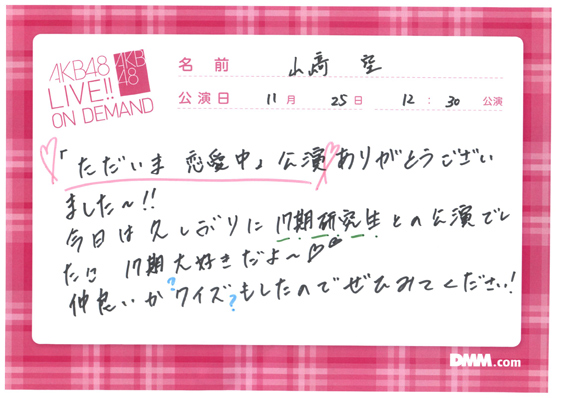 AKB48
LIVE!!
ON DEMAND
AKB
48
名前 山﨑 空
公演日 11月 25日 12:30 公演
「ただいま 恋愛中」公演ありがとうござい
ました〜!!
今日は久しぶりに17期研究生との公演でし
た!! 17期大好きだよ〜♡
仲良いか?クイズ?もしたのでぜひみてください!
DMM.com